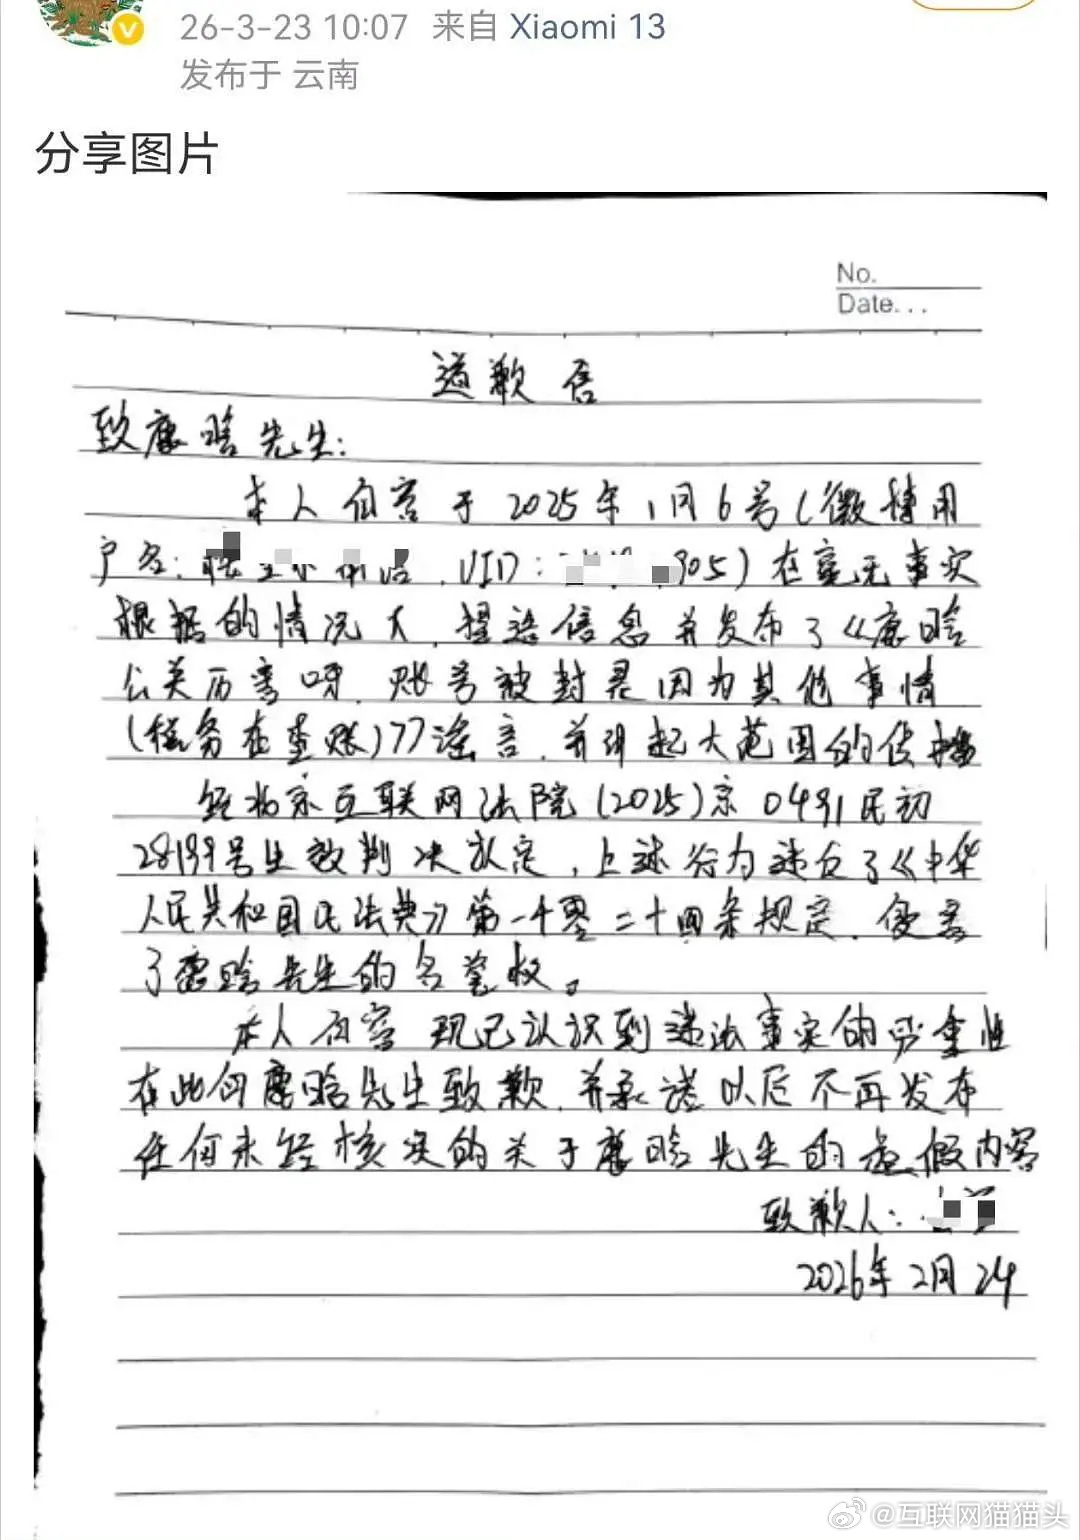 26-3-23 10:07 来自 Xiaomi 13
发布于 云南
分享图片
No.
Date...
道歉信
致康晗先生:
本人 于2025年1月6号(微博用
户名: , UID: 805)在毫无事实
根据的情况大,捏造信息并发布了《康晗
公关历害呀,账号被封是因为其他事情
(税务在查账)77谣言,并引起大范围的传播
经北京互联网法院(2025)京0491民初
28199号生效判决认定,上述行为违反了《中华
人民共和国民法典》第一千零二十四条规定,侵害
了康晗先生的名誉权。
本人 现已认识到违法事实的严重性
在此向康晗先生致歉,并承诺以后不再发布
任何未经核实的关于康晗先生的虚假内容
致歉人:
2026年2月24
@互联网猫猫头